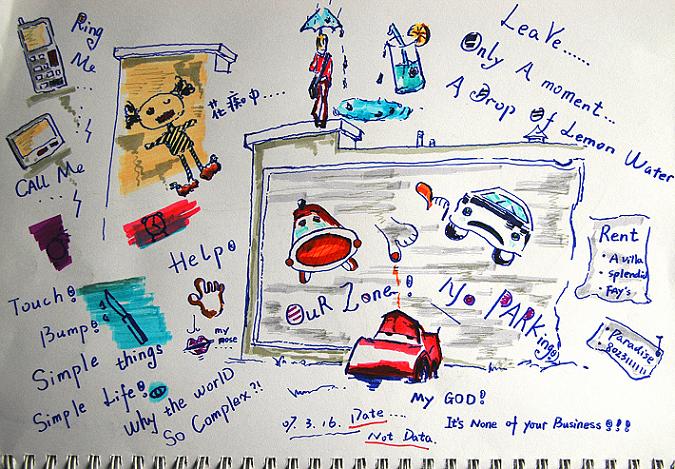 Ring
Me
CALL Me
花痴中.....
LeaVe......
Only A moment...
A Drop Of Lemon Water
Help!
OuR Zone!
No PARKing
Rent
· A villa
· splendid
· FAY's
Paradise
Touch!
Bump!
Simple things
Simple Life!
Why the worlD
So Complex?!
my nose
My GOD!
07.3.16. Date....
Not Data.
It's None of your Business!!!